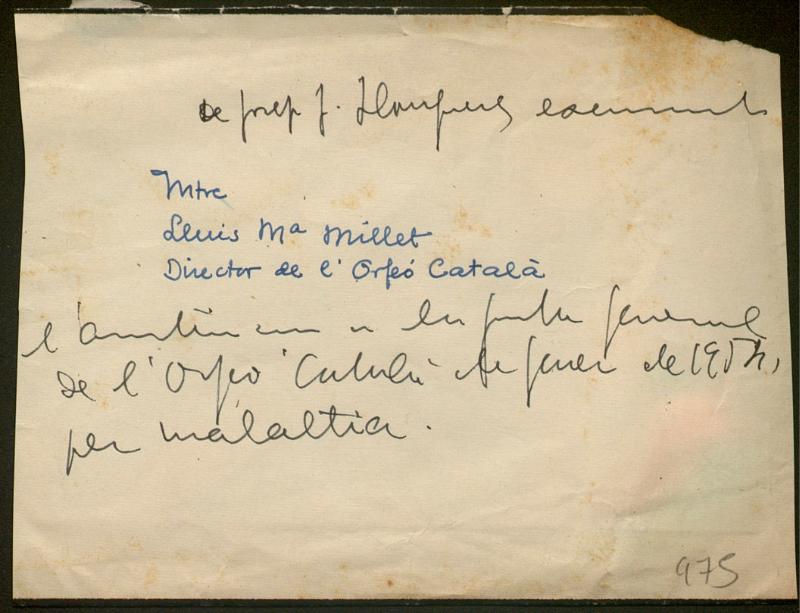 de Josep J. Llongueres excusant
Mtre
Lluis Mª Millet
Director de l'Orfeó Català
a la junta general
de l'Orfeó Català de gener de 195
per malaltia.
975